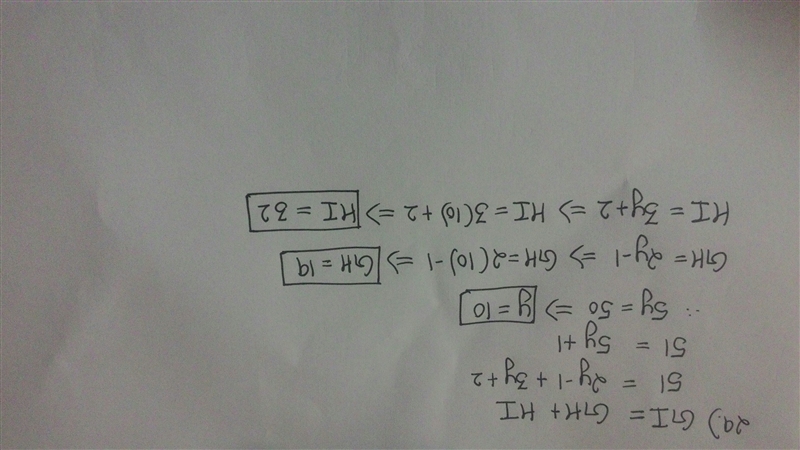 29.) GI = GH + HI
51 = 2y-1 + 3y+2
51 = 5y+1
∴ 5y = 50 => y = 10
GH = 2y-1 => GH = 2(10)-1 => GH = 19
HI = 3y+2 => HI = 3(10)+2 => HI = 32